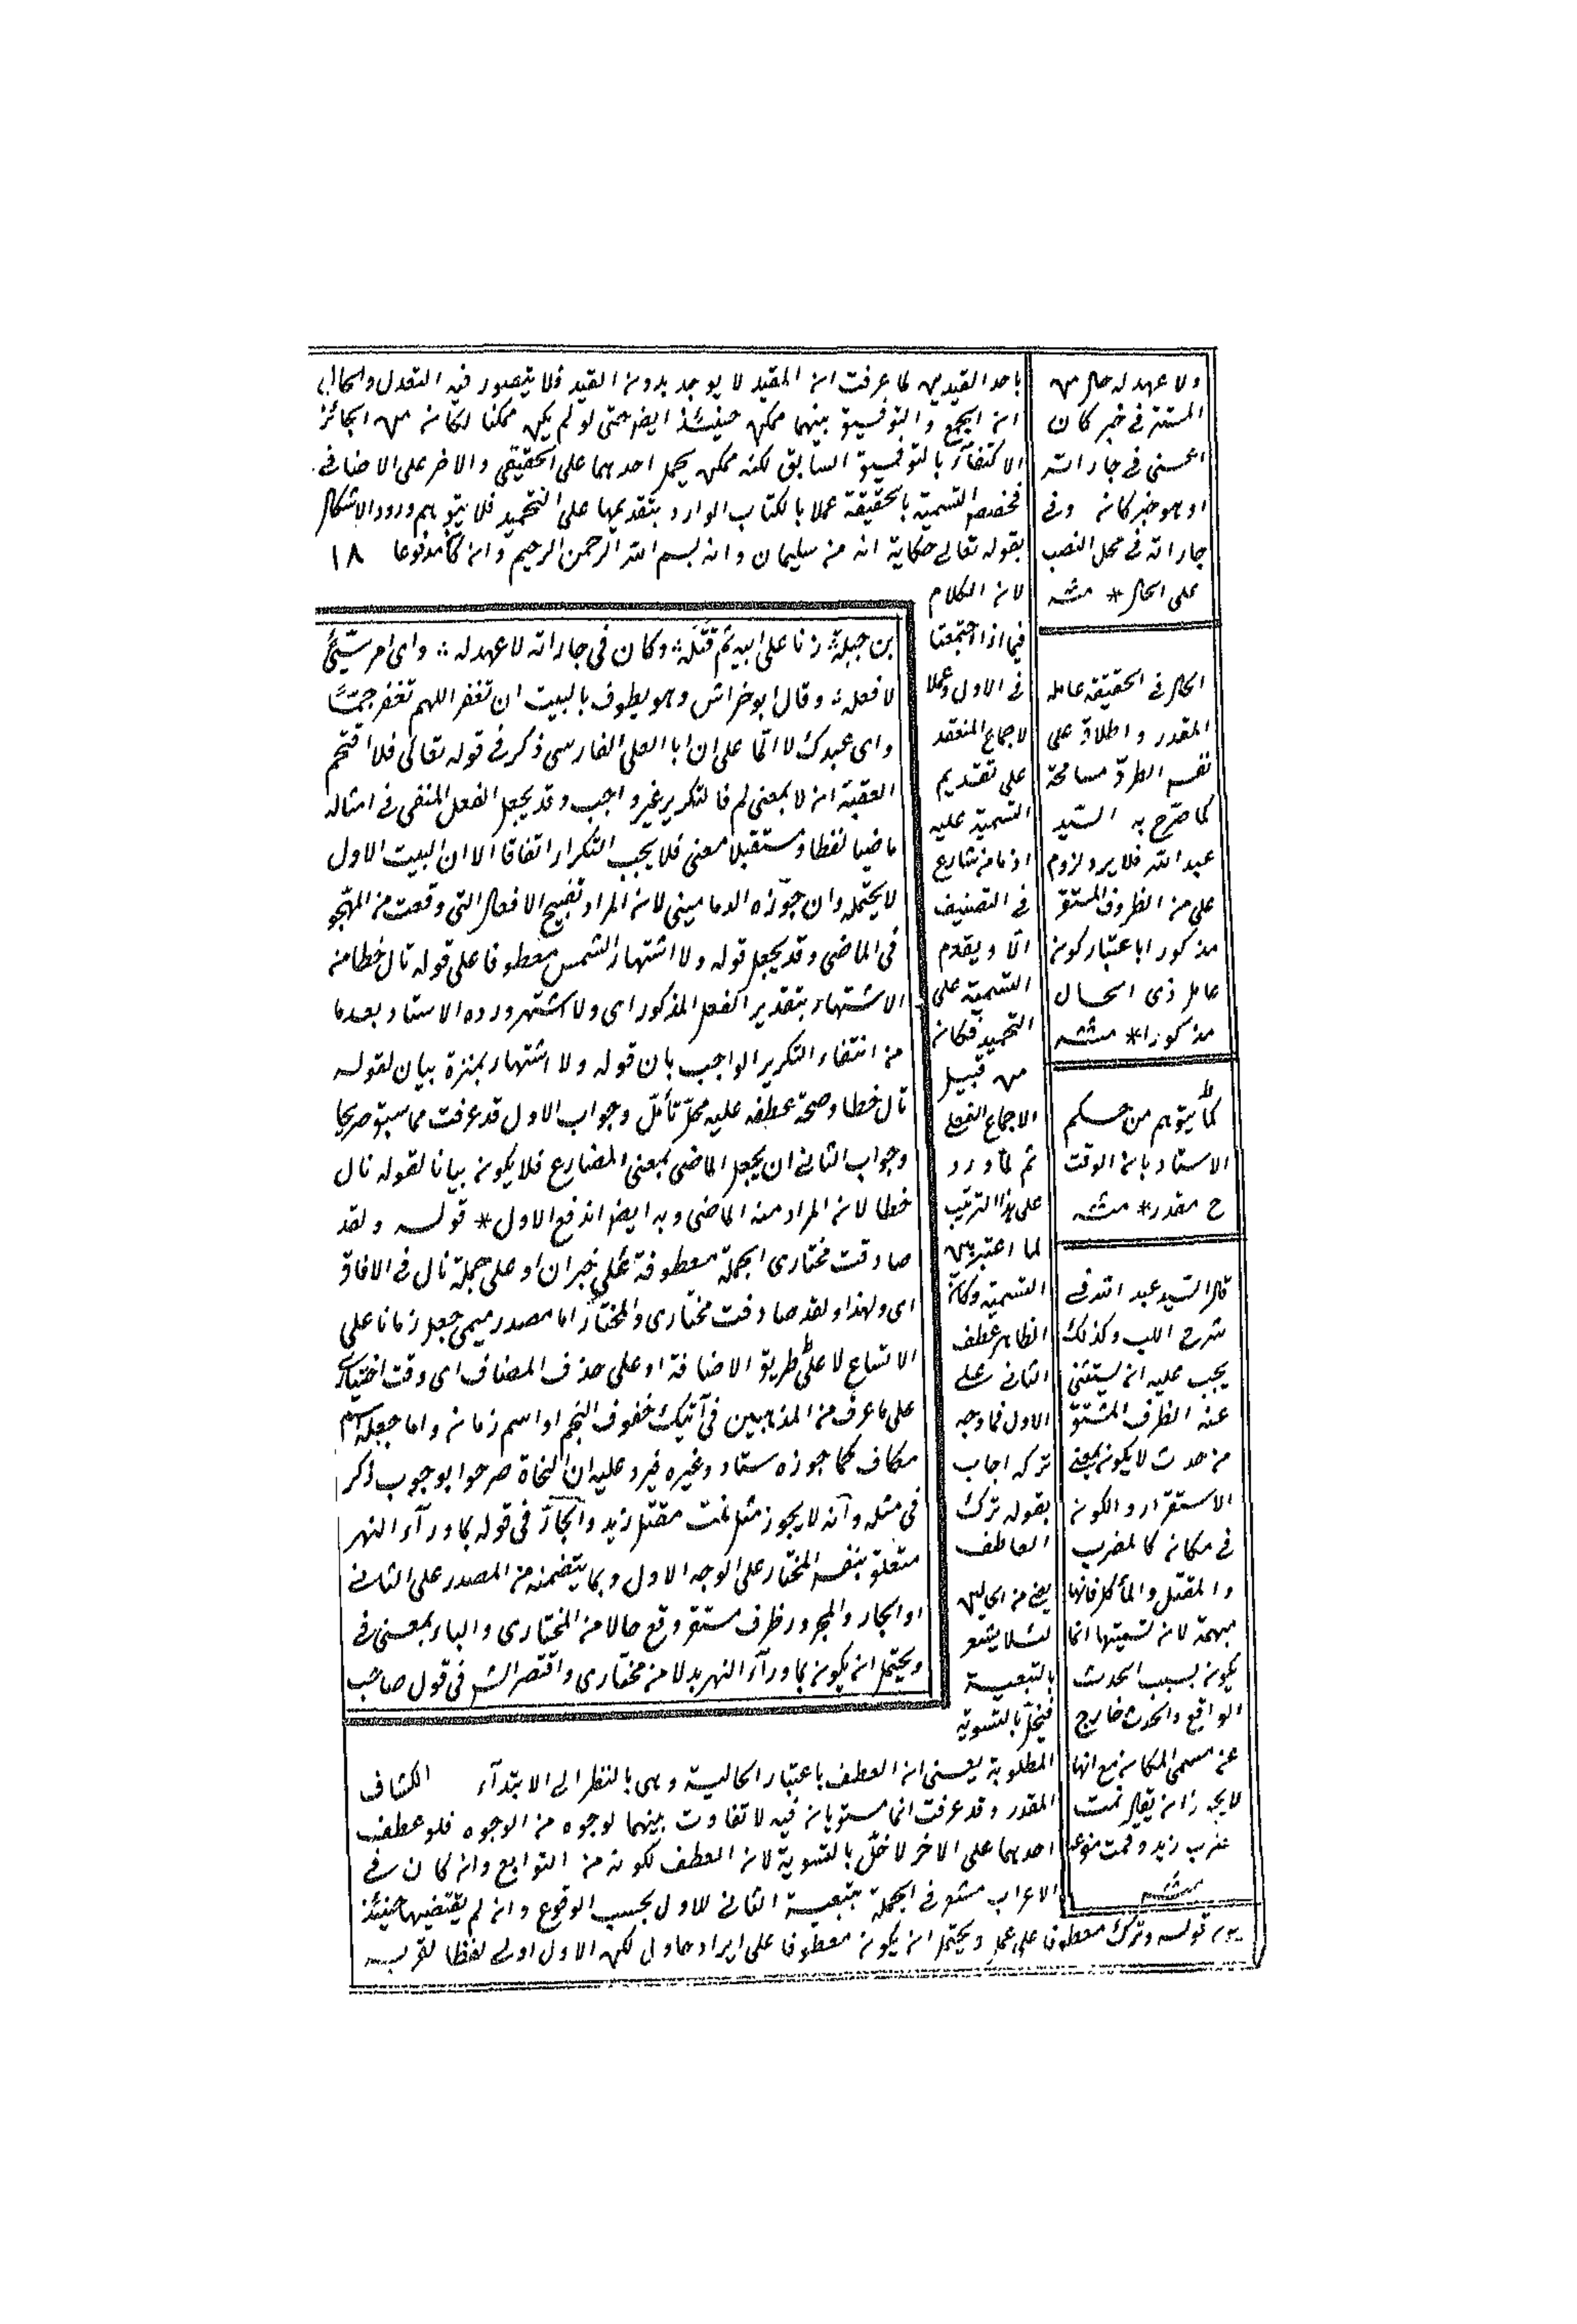 باحد القيدين لما عرفت ان المقيد لا يوجد بدون القيد فلا يتصور فيه التعدل والحال
ان الجمع والتوفيق بينهما ممكن حينئذ ايضا حتى لو لم يكن ممكنا لكان من الجائز
الاكتفاء بالتوفيق السابق لكنه ممكن بحمل احدهما على الحقيقى والاخر على الاضافى
فخصص التسمية بالحقيقة عملا بالكتاب الوارد بتقديمها على التحميد فلا يتوهم ورود الاشكال
بقوله تعالى حكاية انه من سليمان وانه بسم الله الرحمن الرحيم وان كان مدفوعا ١٨
لان الكلام
فيما اذا اجتمعتا
فى الاول وعملا
لاجماع المنعقد
على تقديم
التسمية عليه
اذ ما من شارع
فى التصنيف
الا ويقدم
التسمية على
التحميد فكان
من قبيل
الاجماع الفعلى
ثم لما ورد
على هذا الترتيب
لما اعتبر بين
التسمية وكان
الظاهر عطف
الثانى على
الاول فما وجه
تركه اجاب
بقوله ترك
العاطف
يعنى من الحالين
لئلا يشعر
بالتبعية
فيخل بالتسوية
المطلوبة يعنى ان العطف باعتبار الحالية وهى بالنظر الى الابتدآء
المقدر وقد عرفت انما مستويان فيه لا تفاوت بينهما لوجوه من الوجوه فلو عطف
احدهما على الاخر لاخل بالتسوية لان العطف لكونه من التوابع وان كان فى
الاعراب مشعر فى الجملة بتبعية الثانى للاول بحسب الوقوع وان لم يقتضيها حينئذ
قوله وترك معطوفا على عمل ويحتمل ان يكون معطوفا على ايراد حاول لكن الاول اولى لفظا لقربه
بن جبلة ۞ زنا على ابيه ثم قتله ۞ وكان فى جاراته لا عهد له ۞ واى امر سيّئ
لا فعله ۞ وقال ابو خراش وهو يطوف بالبيت ان تغفر اللهم تغفر جمّا
واى عبدك لا المّا على ان ابا العلى الفارسى ذكر فى قوله تعالى فلا اقتحم
العقبة ان لا بمعنى لم فالتكرير غير واجب وقد يجعل الفعل المنفى فى امثاله
ماضيا لفظا ومستقبلا معنى فلا يجب التكرار اتفاقا الا ان البيت الاول
لا يحتمله وان جوّزه الدمامينى لان المراد تقبيح الافعال التى وقعت من المهجو
فى الماضى وقد يجعل قوله ولا اشتهار الشمس معطوفا على قوله نال خطا من
الاشتهار بتقدير الفعل المذكور اى ولا اشتهر ورده الاستاد بعد ما
من انتفاء التكرير الواجب بان قوله ولا اشتهار بمنزلة بيان لقوله
نال خطا وصحة عطفه عليه محل تأمل وجواب الاول قد عرفت مما سبق صريحا
وجواب الثانى ان يجعل الماضى بمعنى المضارع فلا يكون بيانا لقوله نال
خطا لان المراد منه الماضى وبه ايضا اندفع الاول * قوله ولقد
صادفت مختارى الجملة معطوفة على خبر ان او على جملة نال فى الافاق
اى ولهذا ولقد صادفت مختارى والمختار اما مصدر ميمى جعل زمانا على
الاتساع لا على طريق الاضافة او على حذف المضاف اى وقت اختيارى
على ما عرف من المذهبين فى آتيك خفوق النجم او اسم زمان واما جعله اسم
مكان كما جوزه ستاد وغيره فيرد عليه ان النحاة صرحوا بوجوب ذكر
فى مثله وانه لا يجوز مثل نمت مقتل زيد والجار فى قوله بما ورآء النهر
متعلق بنفس المختار على الوجه الاول وبما يتضمنه من المصدر على الثانى
او الجار والمجرور ظرف مستقر وقع حالا من المختارى والباء بمعنى فى
ويحتمل ان يكون بما ورآء النهر بدلا من مختارى واقتصر الش فى قول صاحب
الكشاف
ولا عهد له حال من
المستتر فى خبر كان
اعنى فى جاراته
او هو خبر كان وفى
جاراته فى محل النصب
على الحال * منه
الحال فى الحقيقة عامله
المقدر واطلاق على
نفس الظرف مسامحة
كما صرّح به السيد
عبد الله فلا يرد لزوم
على من الظروف المستقر
مذكورا باعتبار كون
عامل ذى الحال
مذكورا * منه
كما يتوهم من حكم
الاستاد بان الوقت
ح مقدر * منه
قال السيد عبد الله فى
شرح اللب وكذلك
يجب عليه ان يستثنى
عنه الظرف المشتق
من حدث لا يكون بمعنى
الاستقرار والكون
فى مكان كالمضرب
والمقتل والمأكل فانها
مبهمة لان تسميتها انما
يكون بسبب الحدث
الواقع والحدث خارج
عن مسمى المكان مع انها
لا يجوز ان يقال نمت
مضرب زيد وقمت
منه